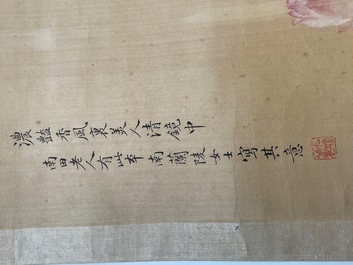 濃豔香風裏美人清鏡中
南田老人有此本南蘭陵女士寫其意